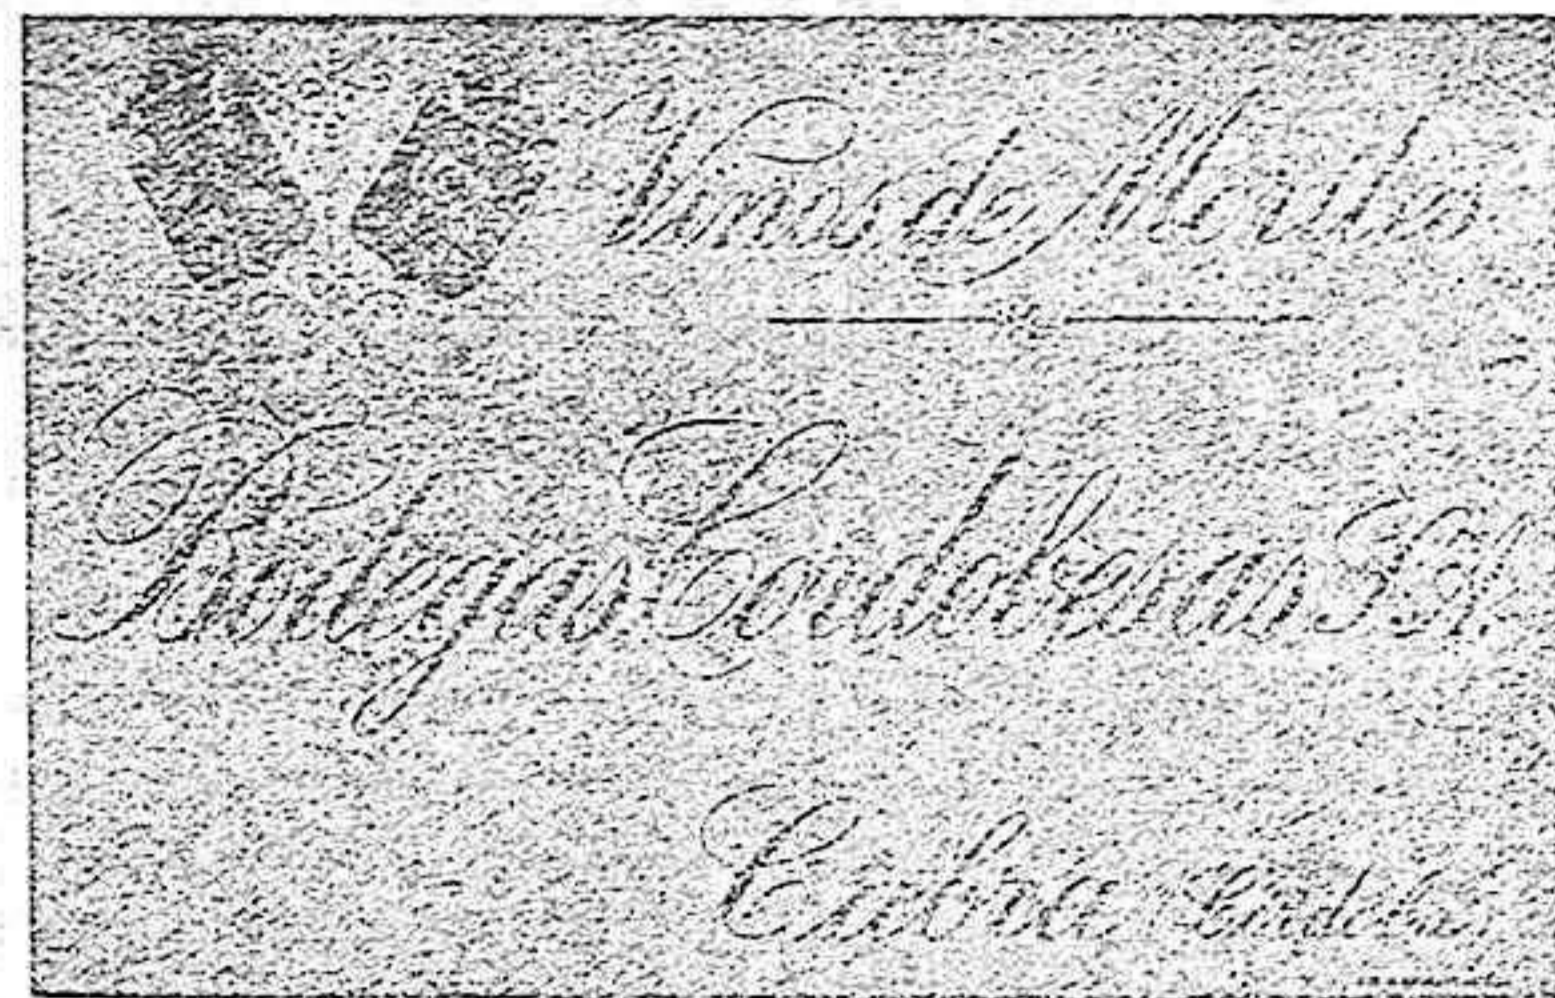 Vinos de Moriles
Bodegas Cordobesas S.A.
Cabra Cordoba